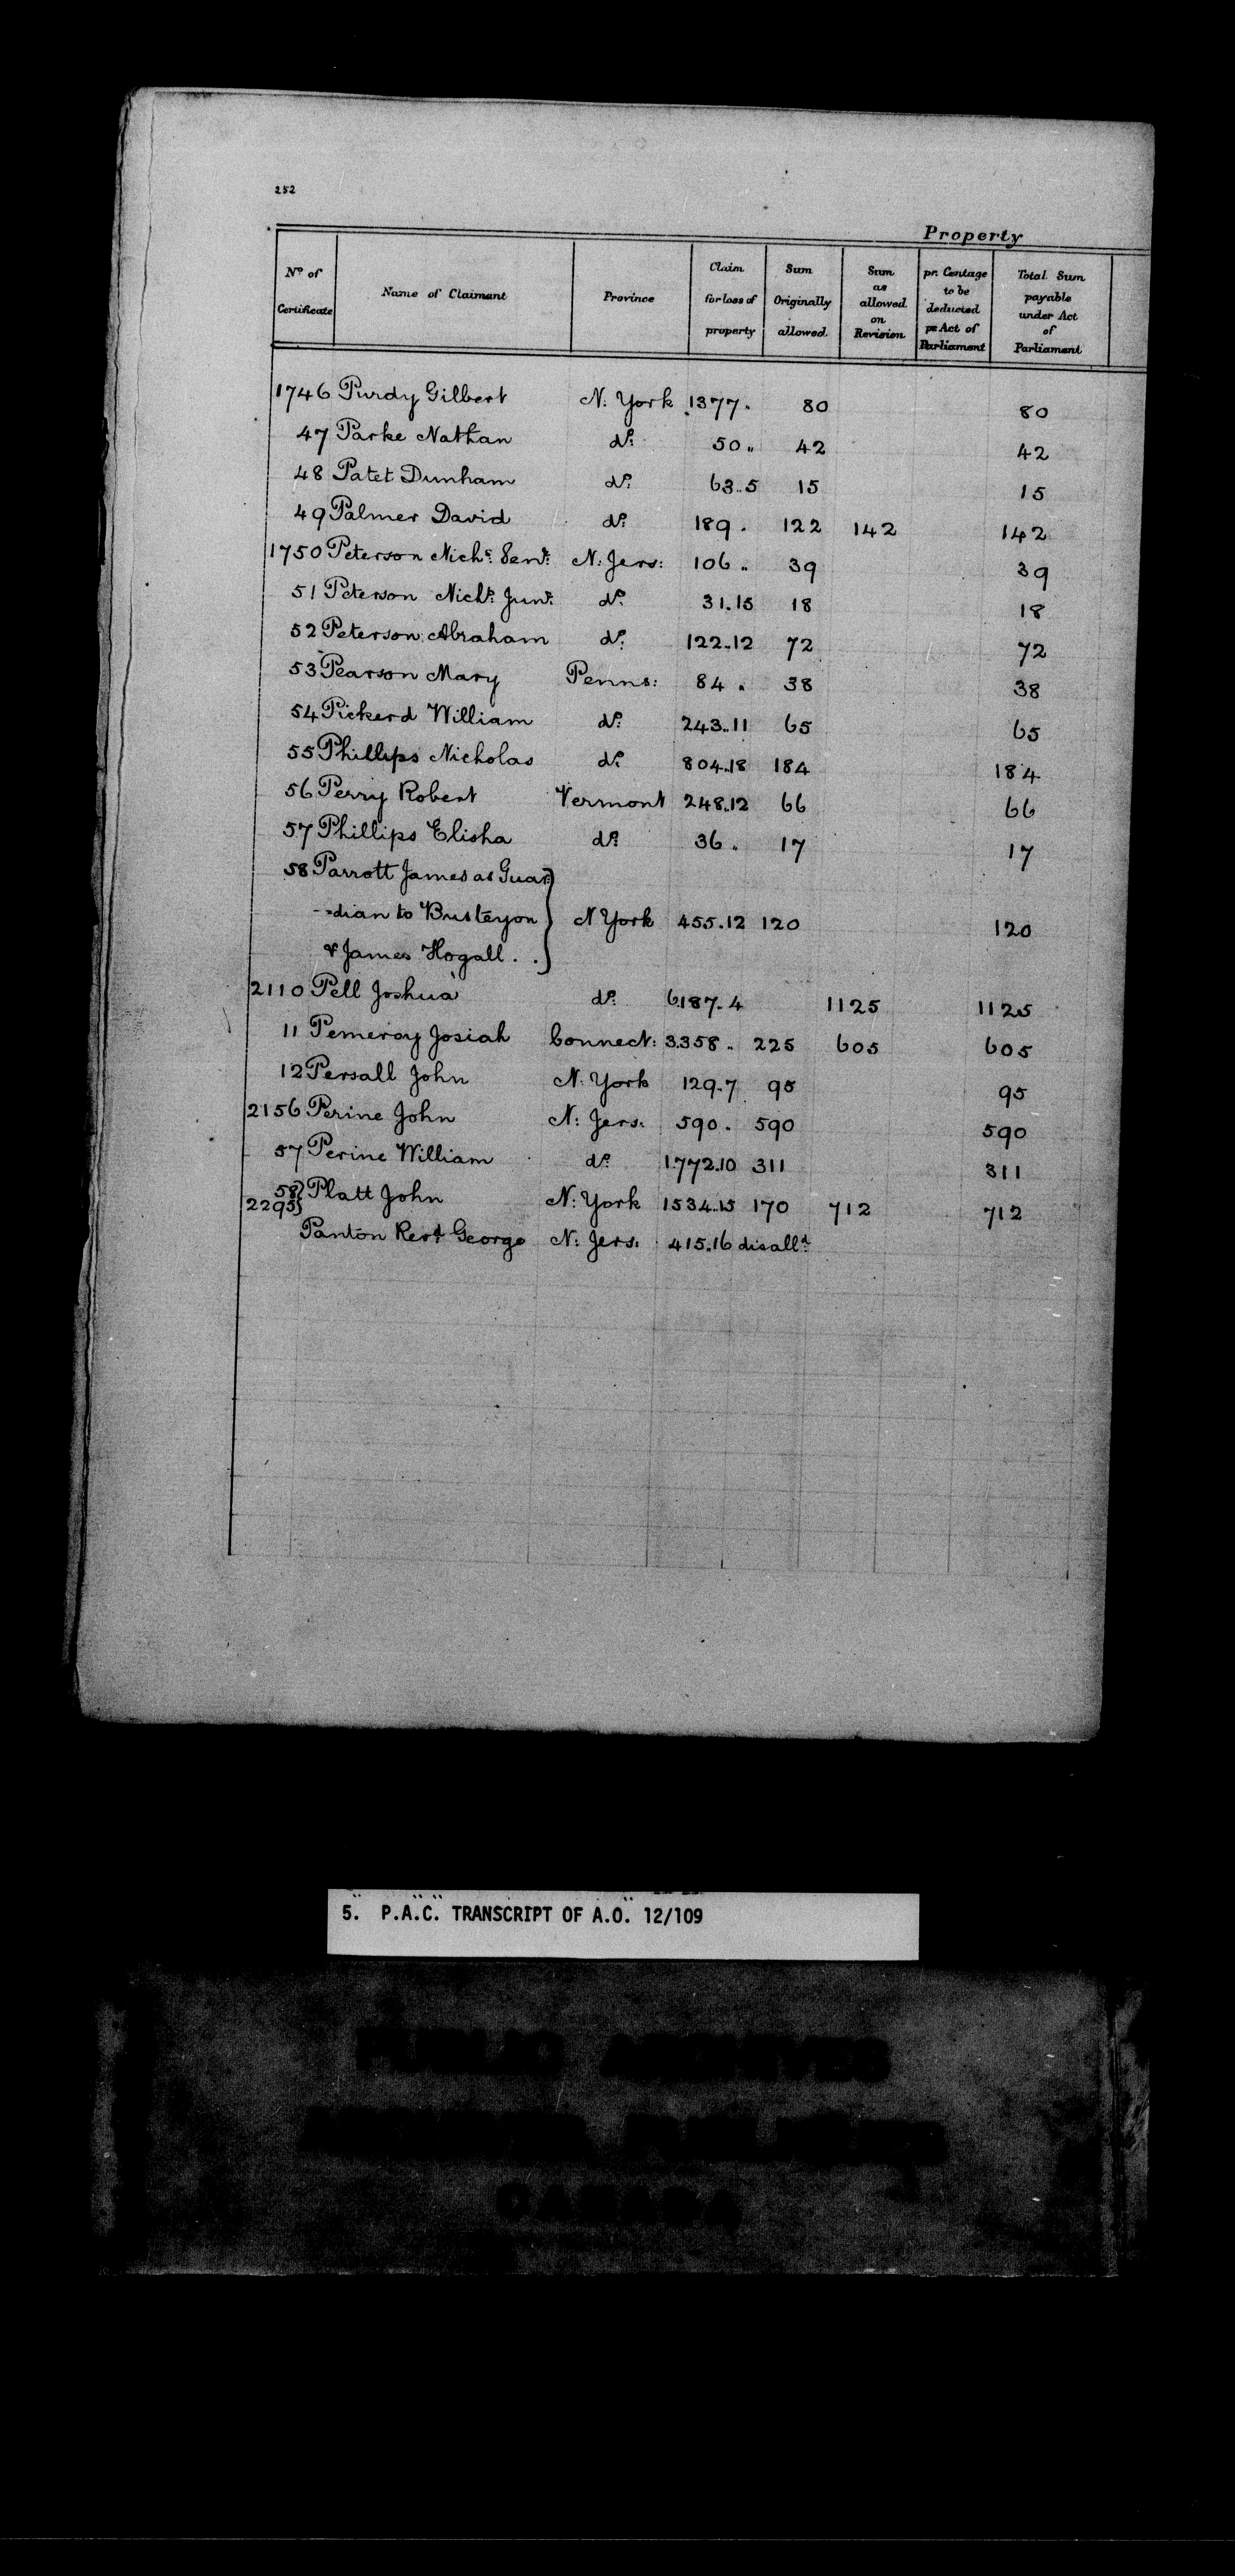 252
Property
No of Certificate Name of Claimant Province Claim for loss of property Sum Originally allowed. Sum as allowed on Revision pr. Centage to be deducted pr Act of Parliament Total Sum payable under Act of Parliament
1746 Purdy Gilbert N. York 1377. 80 80
47 Parke Nathan do. 50.. 42 42
48 Patet Dunham do. 63..5 15 15
49 Palmer David do. 189. 122 142 142
1750 Peterson Nichs. Senr. N. Jers: 106.. 39 39
51 Peterson Nichs. Junr. do. 31.15 18 18
52 Peterson Abraham do. 122..12 72 72
53 Pearson Mary Penns: 84. 38 38
54 Pickerd William do. 243..11 65 65
55 Phillips Nicholas do. 804..18 184 184
56 Perry Robert Vermont 248..12 66 66
57 Phillips Elisha do. 36.. 17 17
58 Parrott James as Guar
-dian to Busteyon N York 455.12 120 120
& James Hogall . .
2110 Pell Joshua do. 6187.4 1125 1125
11 Pemeroy Josiah Connect: 3358.. 225 605 605
12 Persall John N. York 129.7 95 95
2156 Perine John N: Jers: 590. 590 590
57 Perine William do. 1772.10 311 311
58
2295 Platt John N: York 1534..15 170 712 712
Panton Revd. George N: Jers. 415..16 disalld.
5. P.A.C. TRANSCRIPT OF A.O. 12/109
PUBLIC ARCHIVES
CANADA